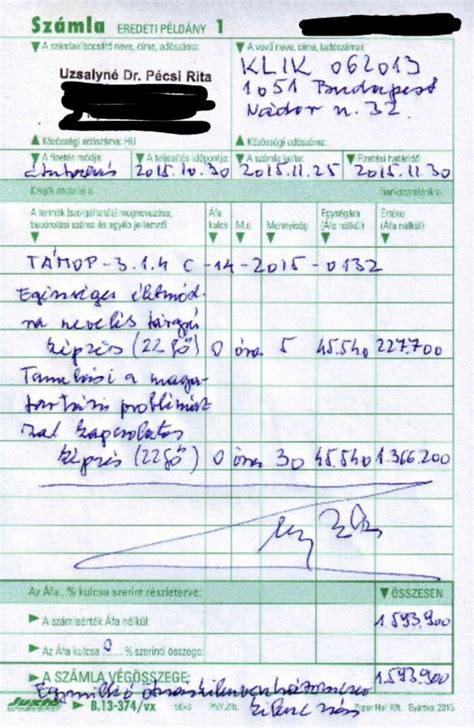 Számla EREDETI PÉLDÁNY 1
A számlakibocsátó neve, címe, adószáma:
A vevő neve, címe, adószáma:
Uzsalyné Dr. Pécsi Rita
KLIK 062013
1051 Budapest
Nádor u. 32.
Közösségi adószáma: HU
Közösségi adószáma:
A fizetés módja: A teljesítés időpontja: A számla kelte: Fizetési határidő
átutalás 2015.10.30 2015.11.25 2015.11.30
Kérjük átutalni a bankszámlánkra.
A termék (szolgáltatás) megnevezése, Áfa M.e. Mennyiség Egységára Értéke
besorolási száma és egyéb jellemzői kulcs (Áfa nélkül) (Áfa nélkül)
TÁMOP-3.1.4 C-14-2015-0132
Egészséges életmód-
ra nevelés tárgyú
képzés (22 fő) 0 óra 5 45.540 227.700
Tanulási a maga-
tartási problémák
kal kapcsolatos
képzés (22 fő) 0 óra 30 45.540 1.366.200
Az Áfa...% kulcsa szerint részletezve: ÖSSZESEN
A számlaérték Áfa nélkül: 1.593.900
Az Áfa kulcsa 0 % szerinti összege:
A SZÁMLA VÉGÖSSZEGE: 1.593.900
Egymillió ötszázkilencvenháromezer
kilencszáz
B.13-374/vx PNY. Zrt. Gyártva: 2015